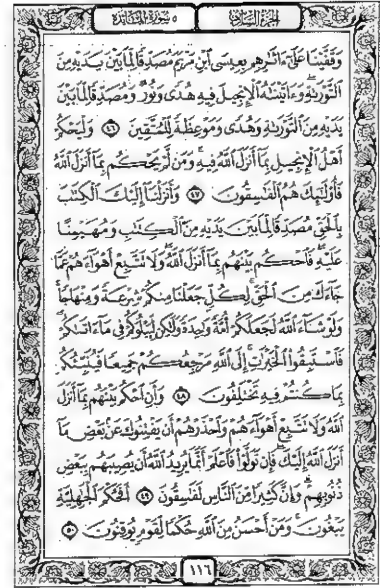 الجزء السادس
٥ سورة المائدة
وَقَفَّيْنَا عَلَىٰٓ ءَاثَٰرِهِم بِعِيسَى ٱبْنِ مَرْيَمَ مُصَدِّقًا لِّمَا بَيْنَ يَدَيْهِ مِنَ
ٱلتَّوْرَىٰةِ وَءَاتَيْنَٰهُ ٱلْإِنجِيلَ فِيهِ هُدًى وَنُورٌ وَمُصَدِّقًا لِّمَا بَيْنَ
يَدَيْهِ مِنَ ٱلتَّوْرَىٰةِ وَهُدًى وَمَوْعِظَةً لِّلْمُتَّقِينَ ٤٦ وَلْيَحْكُمْ
أَهْلُ ٱلْإِنجِيلِ بِمَآ أَنزَلَ ٱللَّهُ فِيهِ وَمَن لَّمْ يَحْكُم بِمَآ أَنزَلَ ٱللَّهُ
فَأُو۟لَٰٓئِكَ هُمُ ٱلْفَٰسِقُونَ ٤٧ وَأَنزَلْنَآ إِلَيْكَ ٱلْكِتَٰبَ
بِٱلْحَقِّ مُصَدِّقًا لِّمَا بَيْنَ يَدَيْهِ مِنَ ٱلْكِتَٰبِ وَمُهَيْمِنًا
عَلَيْهِ فَٱحْكُم بَيْنَهُم بِمَآ أَنزَلَ ٱللَّهُ وَلَا تَتَّبِعْ أَهْوَآءَهُمْ عَمَّا
جَآءَكَ مِنَ ٱلْحَقِّ لِكُلٍّ جَعَلْنَا مِنكُمْ شِرْعَةً وَمِنْهَاجًا
وَلَوْ شَآءَ ٱللَّهُ لَجَعَلَكُمْ أُمَّةً وَٰحِدَةً وَلَٰكِن لِّيَبْلُوَكُمْ فِى مَآ ءَاتَىٰكُمْ
فَٱسْتَبِقُوا۟ ٱلْخَيْرَٰتِ إِلَى ٱللَّهِ مَرْجِعُكُمْ جَمِيعًا فَيُنَبِّئُكُم
بِمَا كُنتُمْ فِيهِ تَخْتَلِفُونَ ٤٨ وَأَنِ ٱحْكُم بَيْنَهُم بِمَآ أَنزَلَ
ٱللَّهُ وَلَا تَتَّبِعْ أَهْوَآءَهُمْ وَٱحْذَرْهُمْ أَن يَفْتِنُوكَ عَنۢ بَعْضِ مَآ
أَنزَلَ ٱللَّهُ إِلَيْكَ فَإِن تَوَلَّوْا۟ فَٱعْلَمْ أَنَّمَا يُرِيدُ ٱللَّهُ أَن يُصِيبَهُم بِبَعْضِ
ذُنُوبِهِمْ وَإِنَّ كَثِيرًا مِّنَ ٱلنَّاسِ لَفَٰسِقُونَ ٤٩ أَفَحُكْمَ ٱلْجَٰهِلِيَّةِ
يَبْغُونَ وَمَنْ أَحْسَنُ مِنَ ٱللَّهِ حُكْمًا لِّقَوْمٍ يُوقِنُونَ ٥٠
١١٦